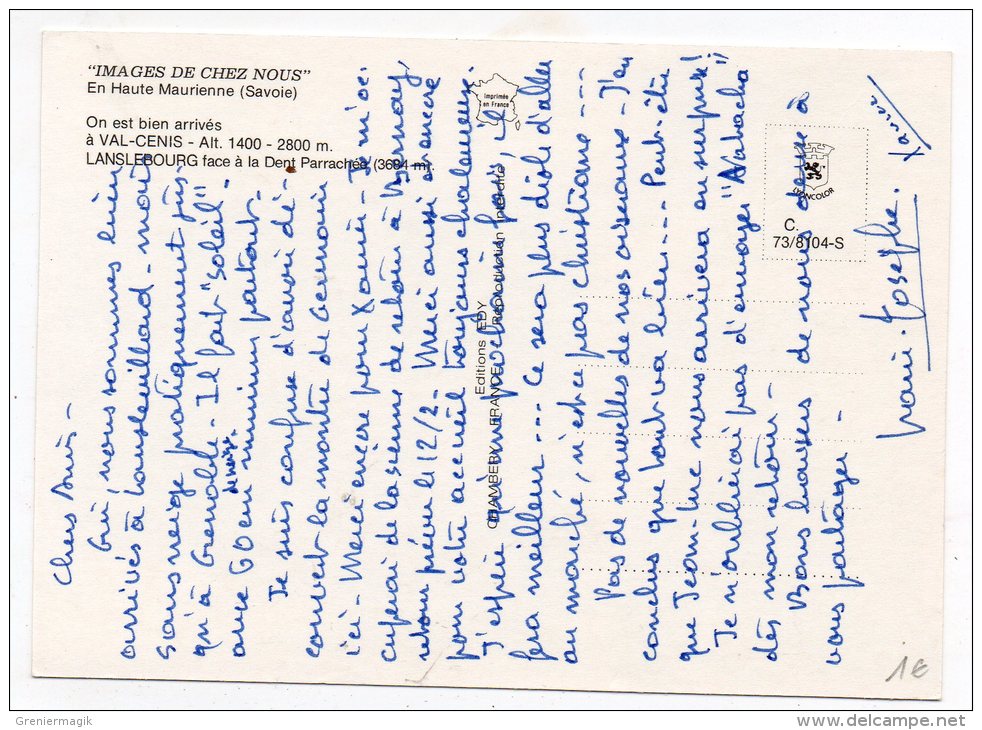 "IMAGES DE CHEZ NOUS"
En Haute Maurienne (Savoie)
On est bien arrivés
à VAL-CENIS - Alt. 1400 - 2800 m.
LANSLEBOURG face à la Dent Parrachée (3684 m).
Imprimée
en France
Editions EDY
CHAMBERY FRANCE Reproduction interdite
LYONCOLOR
C.
73/8104-S
Chers amis -
Oui, nous sommes bien
arrivés à Lanslevillard - mais
sans neige pratiquement jus-
qu'à Grenoble - Il fait "soleil"
avec 60 cm de neige minimum partout -
Je suis confuse d'avoir dé-
couvert la montre de Germain
ici - Merci encore pour Xavier - Je m'oc-
cuperai de la sienne de retour à
retour prévu le 12/2 - Merci aussi encore
pour votre accueil toujours chaleureux.
J'espère que ma prochaine fois, il
fera meilleur... Ce sera plus drôle d'aller
au marché, n'est-ce pas Christiane ---
Pas de nouvelles de nos oiseaux - J'en
conclus que tout va bien.... Peut-être
que Jean-Luc nous arrivera en surprise!
Je n'oublierai pas d'envoyer
dès mon retour -
Bons baisers de nous deux à
vous partager -
Marie-Josèphe. Xavier
1€
Greniermagik
www.delcampe.net